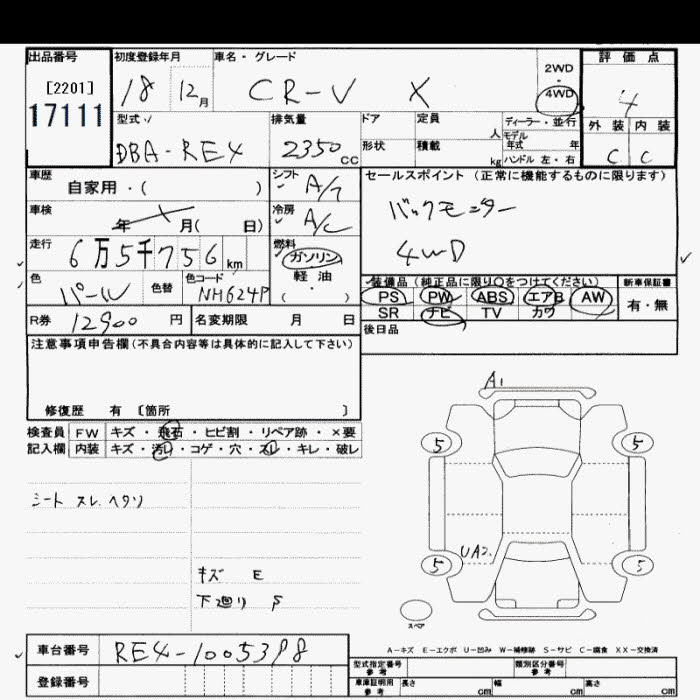 出品番号 初度登録年月 車名・グレード 2WD 評価点
[2201] 18 12月 CR-V X 4WD 4
17111 型式 排気量 ドア 定員 人 ディーラー・並行 外装 内装
DBA-RE4 2350cc 形状 積載 kg モデル年式 年 ハンドル 左・右 C C
車歴 シフト セールスポイント (正常に機能するものに限ります)
自家用・( ) A/T バックモニター
車検 年 月( 日) 冷房 A/C
走行 6万5千756km 燃料 4WD
ガソリン
色 色替 色コード 軽油 装備品 (純正品に限り○をつけてください) 新車保証書
パール NH624P ・( ) PS PW ABS エアB AW 有・無
SR ナビ TV カワ
R券 12900円 名変期限 月 日 後日品
注意事項申告欄(不具合内容等は具体的に記入して下さい)
修復歴 有 [箇所 ]
A1
検査員 FW キズ・飛石・ヒビ割・リペア跡・×要
記入欄 内装 キズ・汚レ・コゲ・穴・スレ・キレ・破レ
5 5
シート スレ、ヘタリ
UA2
5 5
キズ E
下廻り S
スペア
A-キズ E-エクボ U-凹み W-補修跡 S-サビ C-腐食 XX-交換済
車台番号 RE4-1005398
型式指定番号 参考 類別区分番号 参考
登録番号 車庫証明用 参考 長さ cm 幅 cm 高さ cm